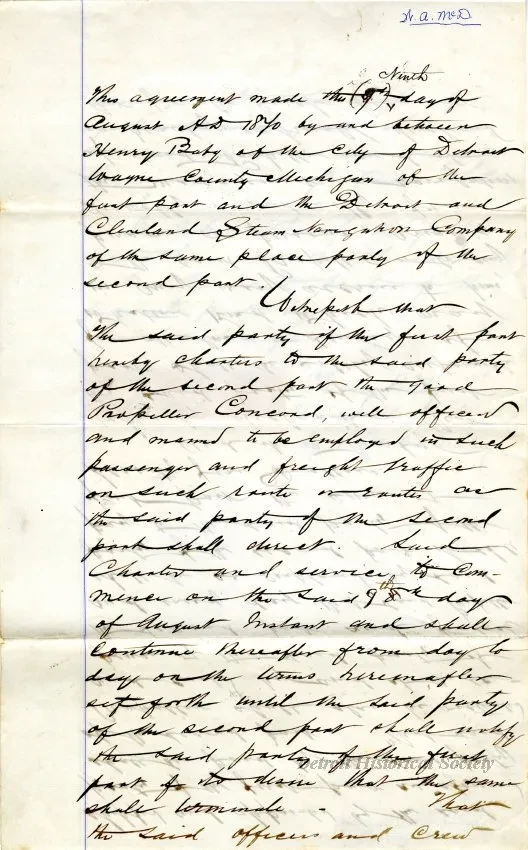 A. A. McD
Ninth
This agreement made this (9th) day of
August AD 1870 by and between
Henry Baby of the City of Detroit
Wayne County Michigan of the
first part and the Detroit and
Cleveland Steam Navigation Company
of the same place party of the
second part. Witnesseth that
The said party of the first part
hereby charters to the said party
of the second part the good
Propeller Concord, well officered
and manned to be employed in such
passenger and freight traffic
on such route or routes as
the said party of the second
part shall direct. Said
Charter and service to Com-
mence on the said 9th day
of August Instant and shall
continue thereafter from day to
day on the terms hereinafter
set forth until the said party
of the second part shall notify
the said party of the first
part of its desire that the same
shall terminate - That
the said officers and Crew
Detroit Historical Society